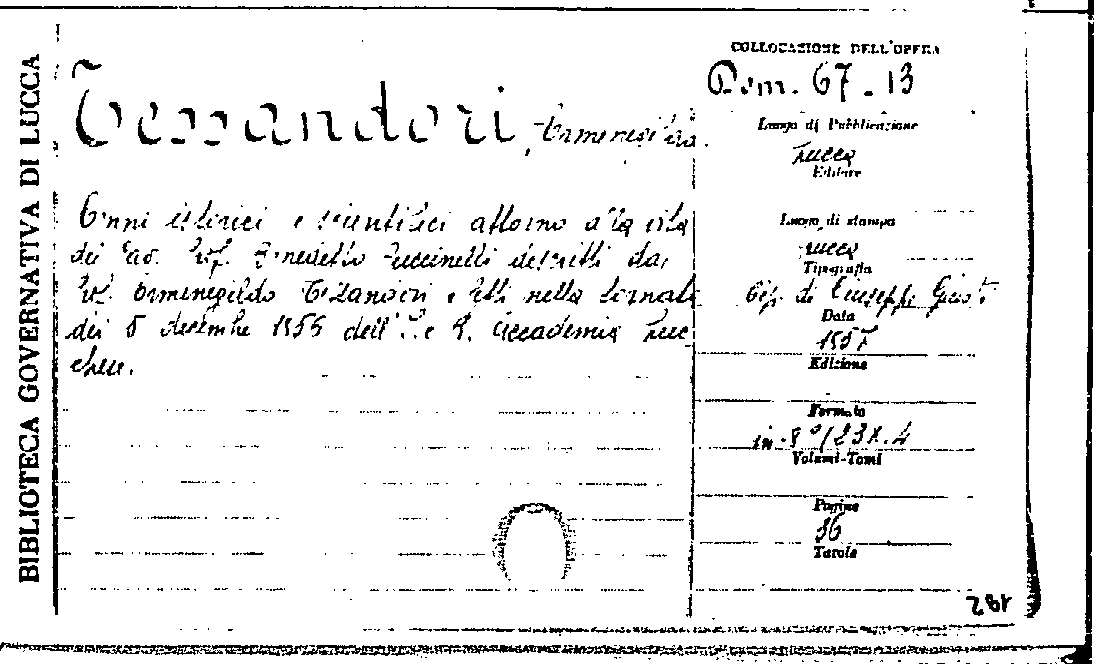 BIBLIOTECA GOVERNATIVA DI LUCCA
Tessandori, Ermenegildo.
Cenni istorici e scientifici attorno alla vita
del Cav. Prof. Benedetto Puccinelli descritti dal
Prof. Ermenegildo Tessandori e letti nella tornata
dei 5 decembre 1855 dell' I. e R. Accademia Luc
chese.
COLLOCAZIONE DELL'OPERA
67-13
Luogo di Pubblicazione
Lucca
Editore
Luogo di stampa
Lucca
Tipografia
Tip. di Giuseppe Giusti
Data
1857
Edizione
Formato
in-8°
Volumi-Tomi
Pagine
36
Tavole